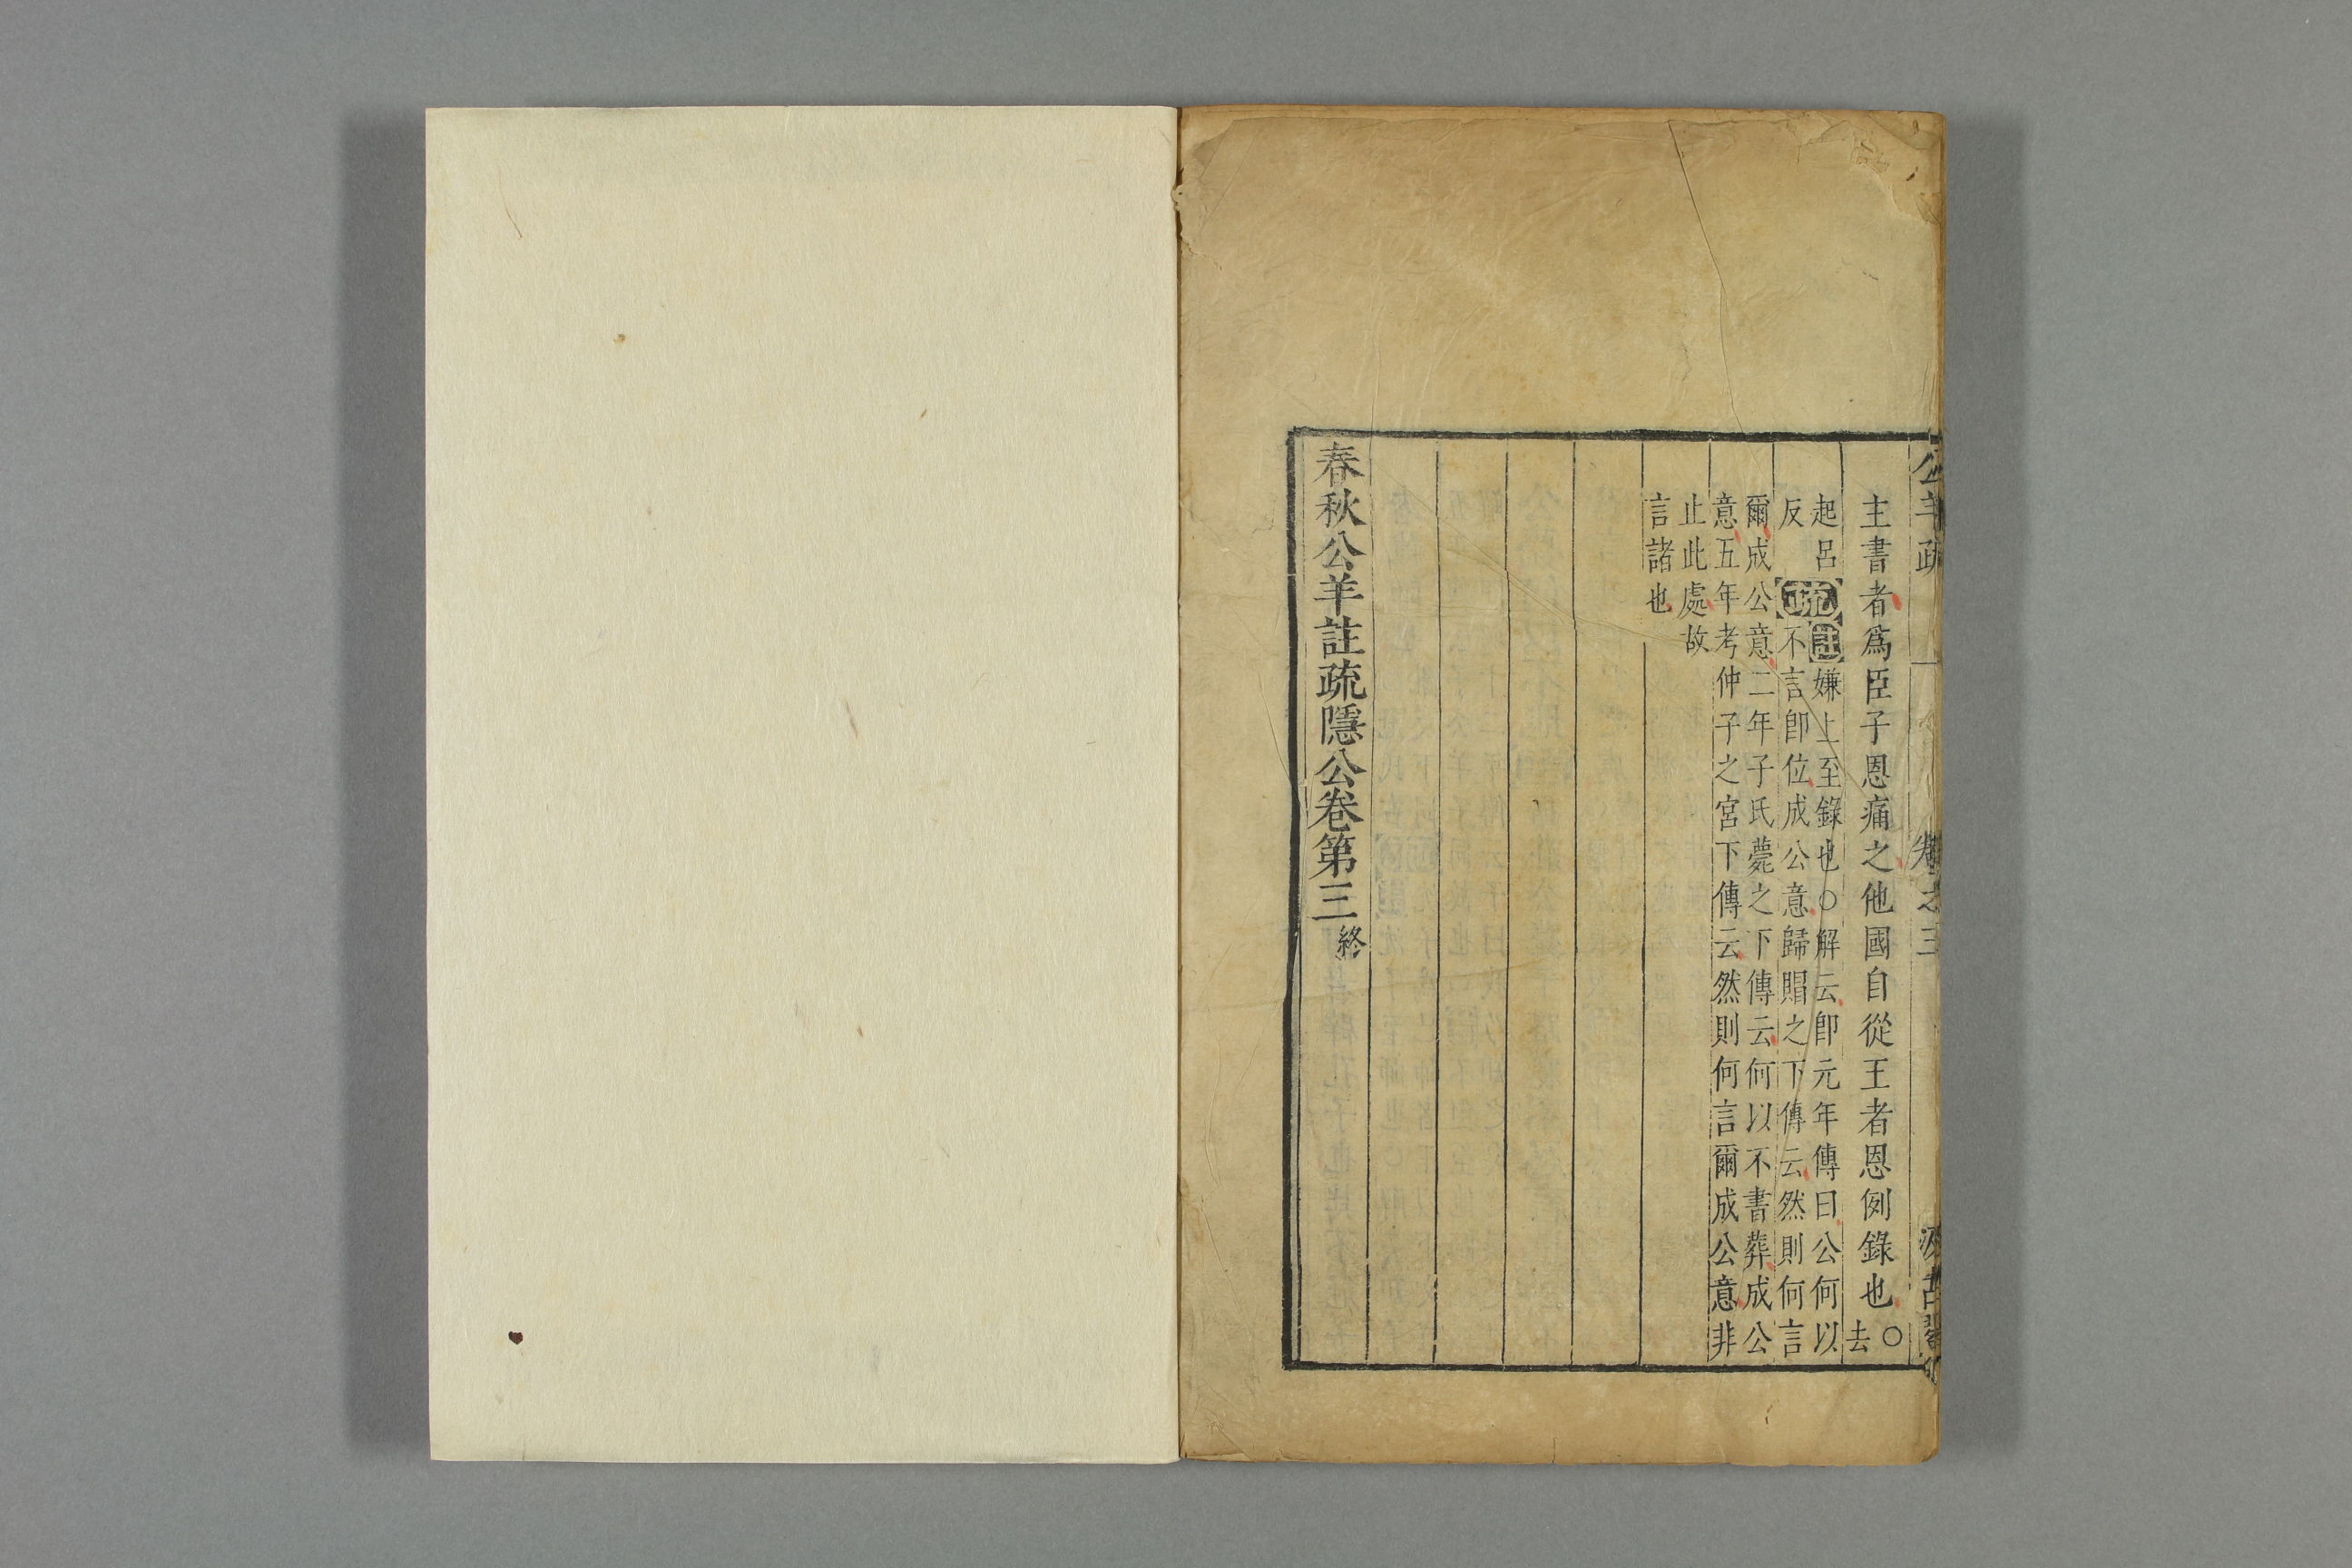 公羊疏 卷之三 汲古閣
主書者爲臣子恩痛之他國自從王者恩例錄也○去
起呂反 疏 註嫌上至錄也○解云卽元年傳曰公何以
不言卽位成公意歸賵之下傳云然則何言
爾成公意二年子氏薨之下傳云何以不書葬成公
意五年考仲子之宮下傳云然則何言爾成公意非
止此處故
言諸也
春秋公羊註疏隱公卷第三終